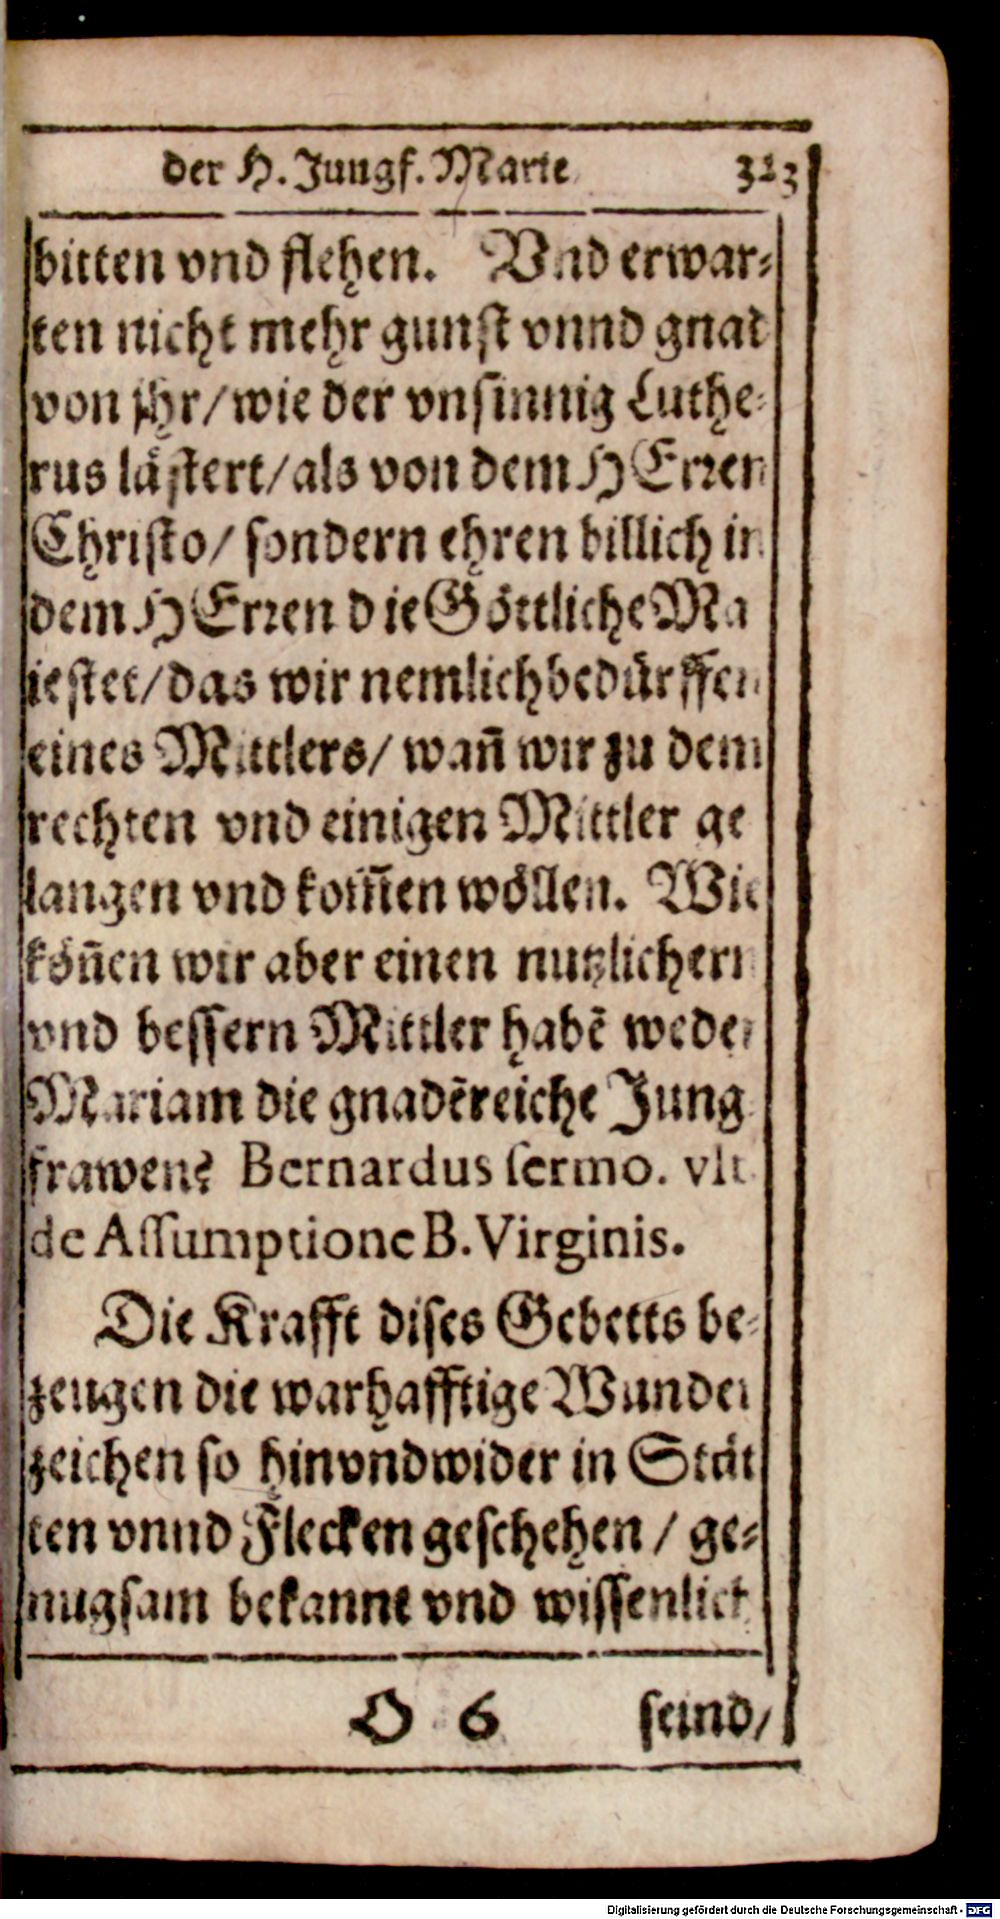 der H. Jungf. Marie 323
bitten vnd flehen. Vnd erwar⸗
ten nicht mehr gunst vnnd gnad
von jhr/ wie der vnsinnig Luthe⸗
rus lästert/ als von dem HErren
Christo/ sondern ehren billich in
dem HErren die Göttliche Ma
iestet/ das wir nemlich bedürffen
eines Mittlers/ wañ wir zu dem
rechten vnd einigen Mittler ge
langen vnd kom̃en wöllen. Wie
köñen wir aber einen nutzlichern
vnd bessern Mittler habẽ weder
Mariam die gnadẽreiche Jung
frawen? Bernardus sermo. vlt.
de Assumptione B. Virginis.
Die Krafft dises Gebetts be⸗
zeugen die warhafftige Wunder
zeichen so hinvndwider in Stät
ten vnnd Flecken geschehen / ge⸗
nugsam bekannt vnd wissenlich
O 6 seind/
Digitalisierung gefördert durch die Deutsche Forschungsgemeinschaft - DFG